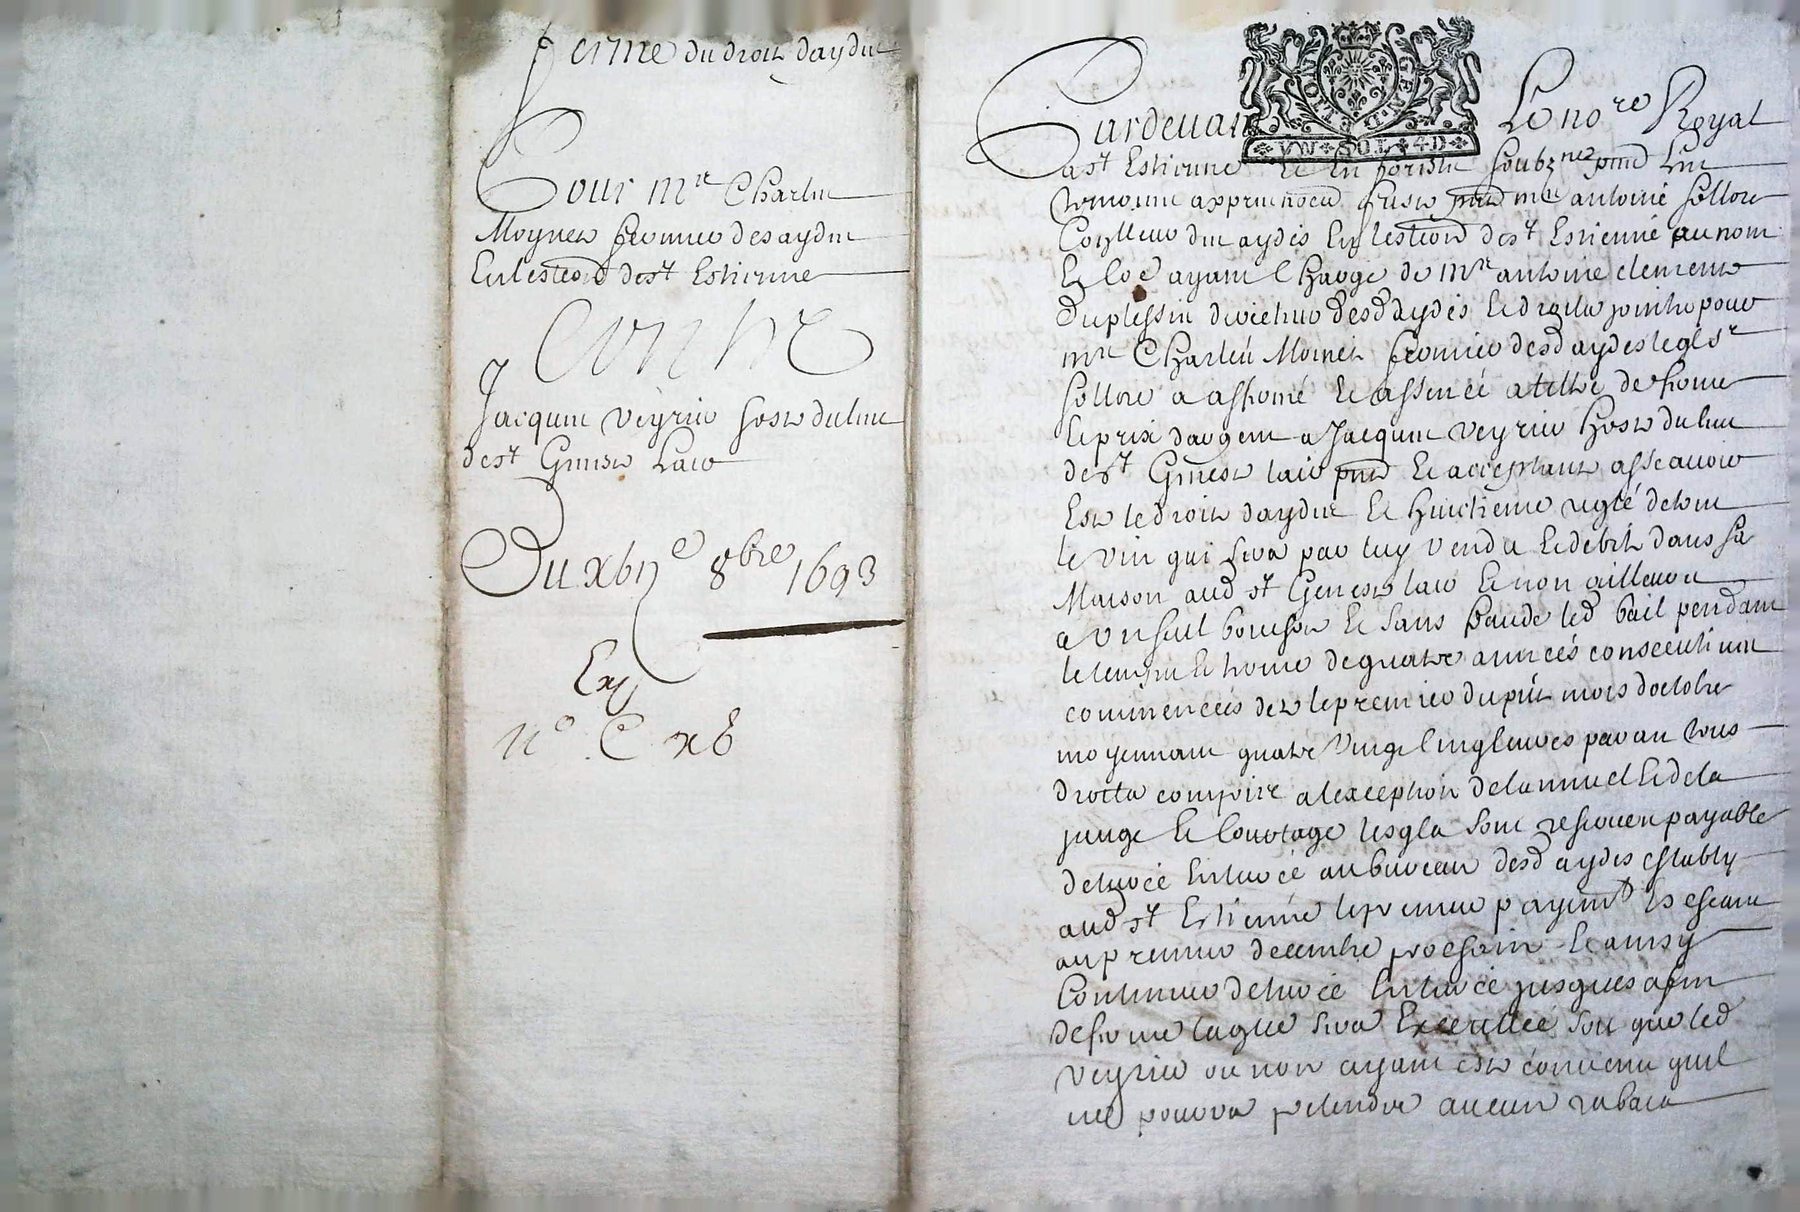 Ferme du droit daydes
Pour Mre Charles
Moynet fermier des aydes
En lestion de st Estienne
Contre
Jacques Veyrier hoste du lieu
de st Genest Lair
Du xbije 8bre 1693
Exp
No C xb
Pardevant Le nore Royal
VN SOL 4 D
a st Estienne et en forestz soubzne pnt Les
tesmoins apres nommés fust pnt Mre antoine
Commis des aydes En lestion de st Estienne au nom
Et Coe ayant Charge de Mre antoine clement
Duplessis directeur desd aydes et droits joints pour
Mre Charles Moinet fermier desd aydes leql sr
a affermé et assencé a tiltre de ferme
et prix dargent a Jacques Veyrier Hoste du lieu
de st Genest lair pnt Et acceptant assavoir
Est le droit daydes Et Huictieme reglé de tout
le vin qui sera par luy vendu et debité dans sa
Maison aud st Genest lair et non ailleurs
a un seul bouchon et sans fraude led bail pendant
le temps et terme de quatre années consecutives
commencées des le premier du pnt mois doctobre
moyennant quatre vingt cinq livres par an tous
droits compris a lexception de lannuel et de la
jauge et Courtage lesqls sont reservez payable
au bureau desd aydes establi
aud st Estienne le premier payemt Escheant
au premier decembre prochain Et ainsy
Continuer jusques a fin
de ferme laqlle sera Executtée soit que led
Veyrier ou non ayant esté convenu quil
ne pourra pretendre aucun rabais